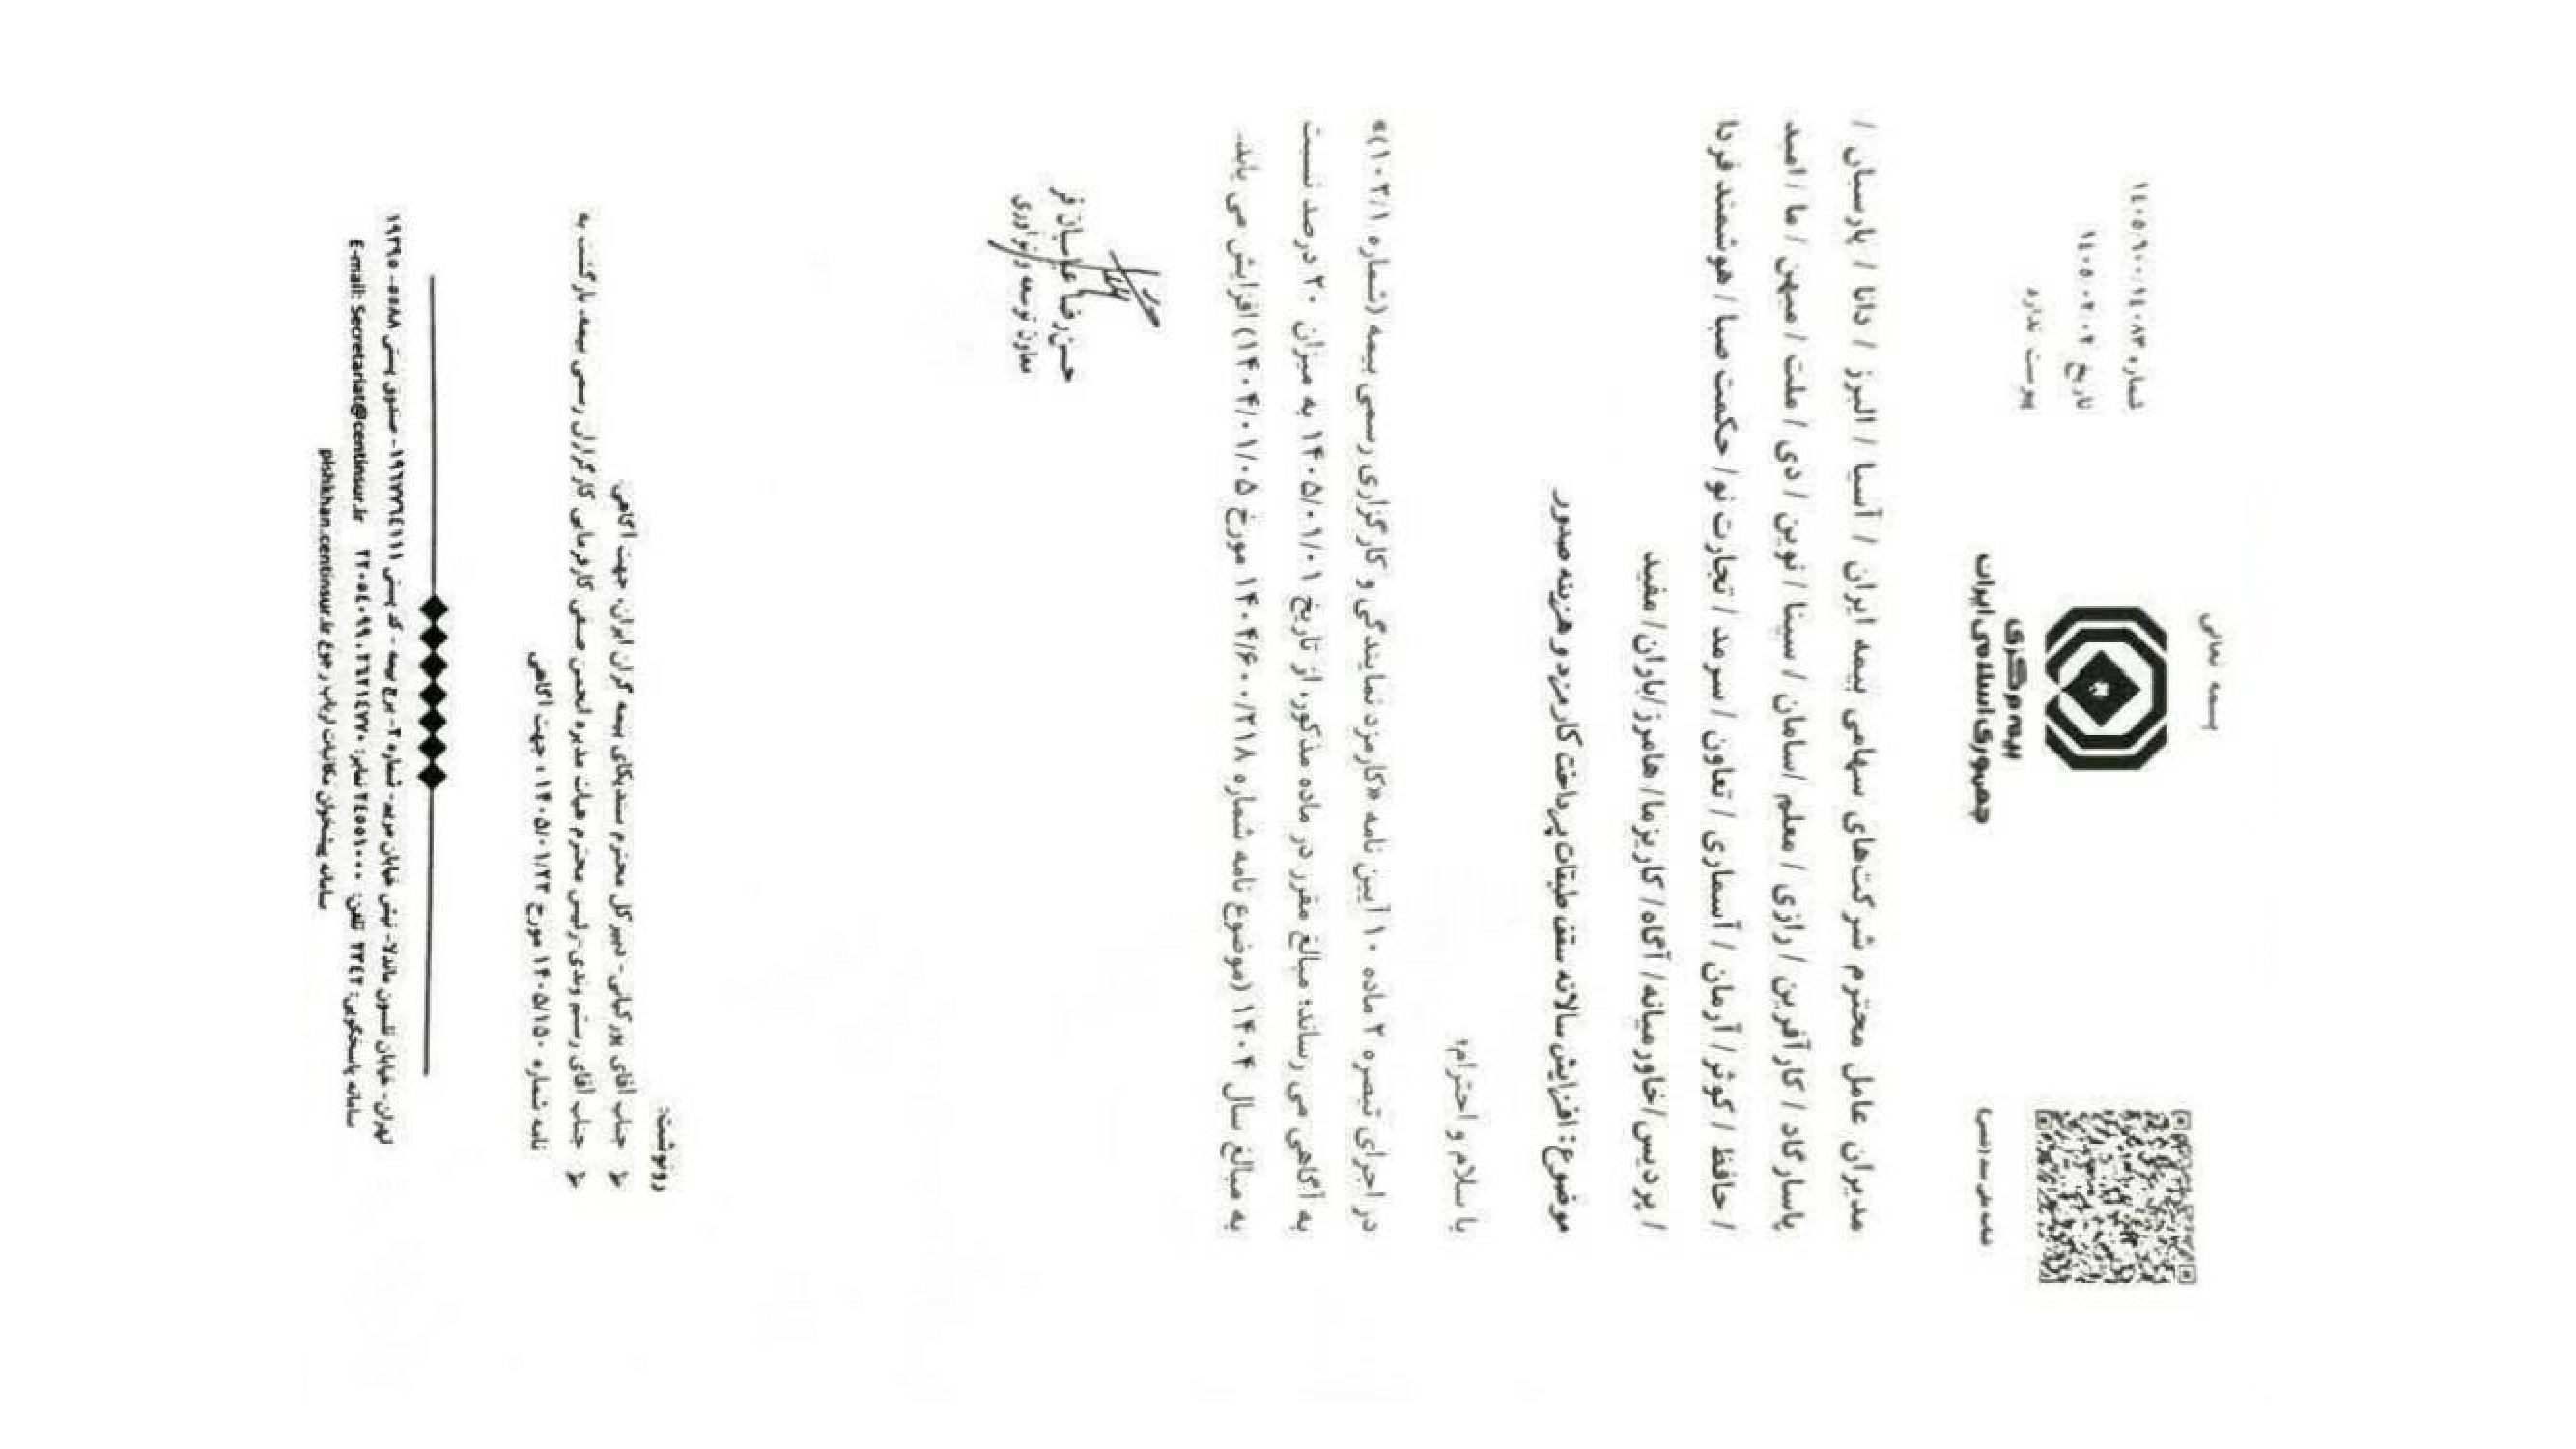 بسمه تعالی
شماره ۱۴۰۵/۶۰۰/۱۴۰۸۳
تاریخ ۱۴۰۵/۰۲/۰۲
پیوست ندارد
بیمه مرکزی
جمهوری اسلامی ایران
مدیران عامل محترم شرکت‌های سهامی بیمه ایران / آسیا / البرز / دانا / پارسیان /
پاسارگاد / کارآفرین / رازی / معلم /سامان / سینا / نوین / دی / ملت / میهن / ما / امید
/ حافظ / کوثر / آرمان / آسماری / تعاون / سرمد / تجارت نو/ حکمت صبا / هوشمند فردا
/ پردیس/خاورمیانه/ آگاه/ کاریزما/ هامرز/باران/ مفید
موضوع: افزایش سالانه سقف طبقات پرداخت کارمزد و هزینه صدور
با سلام و احترام؛
در اجرای تبصره ۲ ماده ۱۰ آیین نامه «کارمزد نمایندگی و کارگزاری رسمی بیمه (شماره ۱۰۲/۱)»
به آگاهی می رساند؛ مبالغ مقرر در ماده مذکور، از تاریخ ۱۴۰۵/۰۱/۰۱ به میزان ۲۰ درصد نسبت
به مبالغ سال ۱۴۰۴ (موضوع نامه شماره ۱۴۰۴/۶۰۰/۲۱۸ مورخ ۱۴۰۴/۰۱/۰۵) افزایش می یابد.
حسن رضا عباسیان فر
معاون توسعه و نوآوری
رونوشت:
جناب آقای پورکیانی- دبیرکل محترم سندیکای بیمه گران ایران، جهت آگاهی
جناب آقای رستم وندی-رئیس محترم هیات مدیره انجمن صنفی کارفرمایی کارگزاران رسمی بیمه، بازگشت به
نامه شماره ۱۴۰۵/۱۵۰ مورخ ۱۴۰۵/۰۱/۲۳، جهت آگاهی
تهران- خیابان نلسون ماندلا- نبش خیابان مریم- شماره ۲- برج بیمه - کد پستی ۱۹۶۷۷۶۴۱۱۱- صندوق پستی ۵۵۸۸-۱۹۳۹۵
سامانه پاسخگویی: ۲۲۴۲ تلفن: ۲۴۵۵۱۰۰۰ نمابر: ۲۶۲۱۴۷۷۰، ۲۲۰۵۴۰۹۹ E-mail: Secretariat@centinsur.ir
سامانه پیشخوان مکاتبات ارباب رجوع pishkhan.centinsur.ir